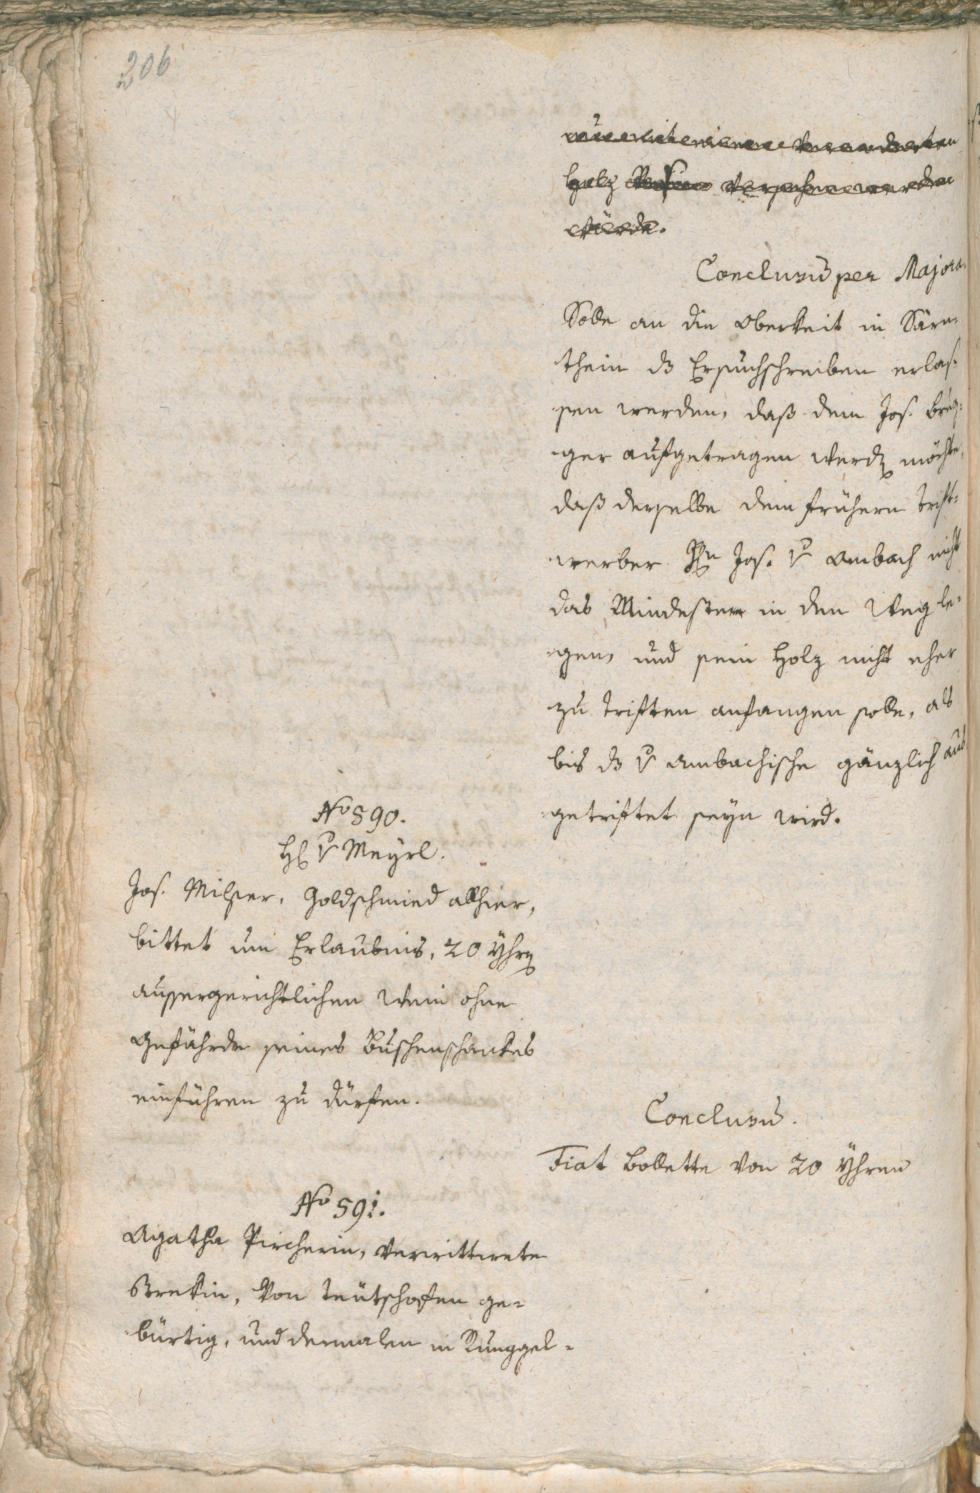 206
holz
würde.
Conclusū per Majora.
Solle an die Oberkeit in Särn-
thein ds Ersuchschreiben erlas-
sen werden, daß dem Jos. Breg-
ger aufgetragen werdẽ möchte,
daß derselbe dem frühern Trift-
werber Hn Jos. v Ambach nicht
das Mindeste in den Weg le-
gen, und sein Holz nicht eher
zu triften anfangen solle, als
bis ds v Ambachische gänzlich aus
getriftet seyn wird.
No 590.
H v Meyrl.
Jos. Milser, Goldschmied allhier,
bittet um Erlaubnis, 20 Yhrẽ
aussergerichtlichen Wein ohne
Gefährde seines Buschenschankes
einführen zu dürfen.
Conclusū.
Fiat Bollette von 20 Yhren
No 591.
Agatha Pircherin, verwittwete
von Teutschofen ge-
bürtig, und dermalen in Runggel-